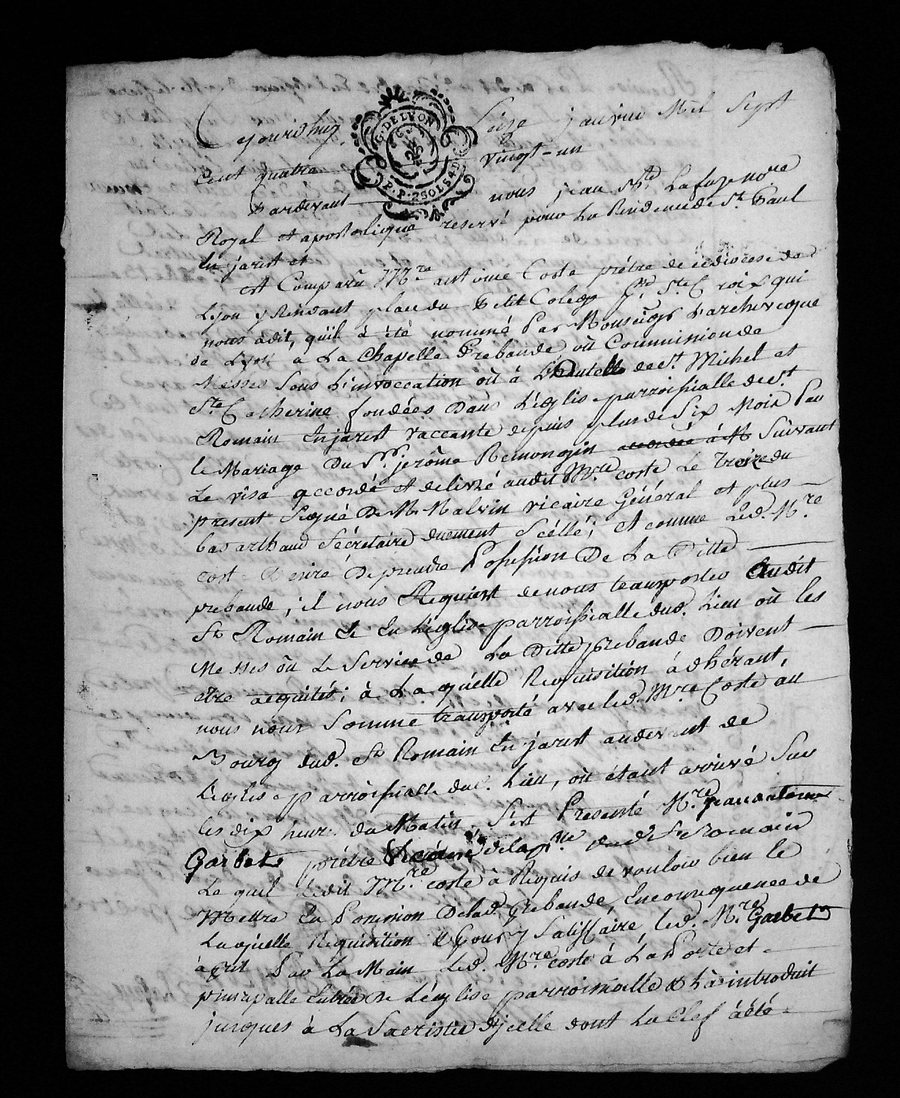 G. DE LYON
P. P. 2 SOLS 4 D
Cejourdhuy Seize janvier Mil Sept
Cent quatre vingt-un
Pardevant nous jean Lafay no.re
Royal et apostolique reservé pour La Residence de St. Paul
En jarest et
est Comparu M.re antoine Coste prêtre de ce diocese de
Lyon y Residant place du Petit Colege St.e Croix qui
nous a dit, qu'il à été nommé Par Monseig.r L'archeveque
de Lyon a La Chapelle Prebande où Commission de
Messes Sous L'invocation où à L'hautelle de St. Michel et
St.e Catherine fondées Dans L'eglise parroissialle de St.
Romain En jarest vaccante depuis plus de Six Mois Par
le Mariage du S.r jerôme Remongin accordé à M Suivant
Le visa accordé et delivré audit M.re Coste Le Treize du
present Signé De M. Malvin vicaire Général et plus
bas arthaud Sécrétaire duement Scéllé; et comme Led. M.re
Coste Desire De prendre Possession De La Ditte
prebande; il nous Requiert de nous transporter Audit
St. Romain Et En L'eglise parroissialle dud. Lieu où les
Messes où Le Service de La Ditte prebande Doivent
etre acquités; à La quelle Requisition à dhérant,
nous nous Somme transporté avec led. M.re Coste au
Bourg dud. St. Romain En jarest audevant de
L'eglise parroissialle dud. Lieu, où étant arrivé Sur
Les dix heures du Matin S'est Presenté M.re jean antoine
Garbet prêtre Vicaire de la p.sse dud. St. Romain
Le quel Ledit M.re Coste à Requis de vouloir bien le
Mettre En Possession De lad. Prebande, En consequence de
Laquelle Requisition & Pour y Satisfaire, led. M.re Garbet
à prit Par La Main Led. M.re Coste à La Porte et
principalle Entrée De L'eglise parroissialle & L'a introduit
jusques à La Sacristie d'jcelle dont La Clef a été